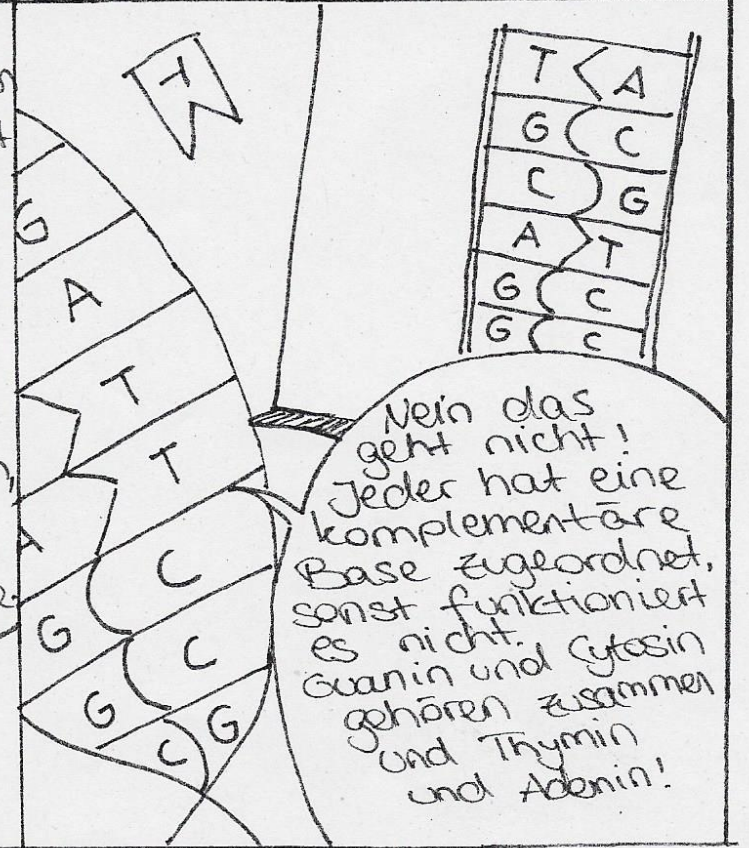 T
T A
G C
C G
A T
G C
G C
G
A
T
T
A
C
G
C
G
C
G
Nein das
geht nicht!
Jeder hat eine
komplementäre
Base zugeordnet,
sonst funktioniert
es nicht.
Guanin und Cytosin
gehören zusammen
und Thymin
und Adenin!